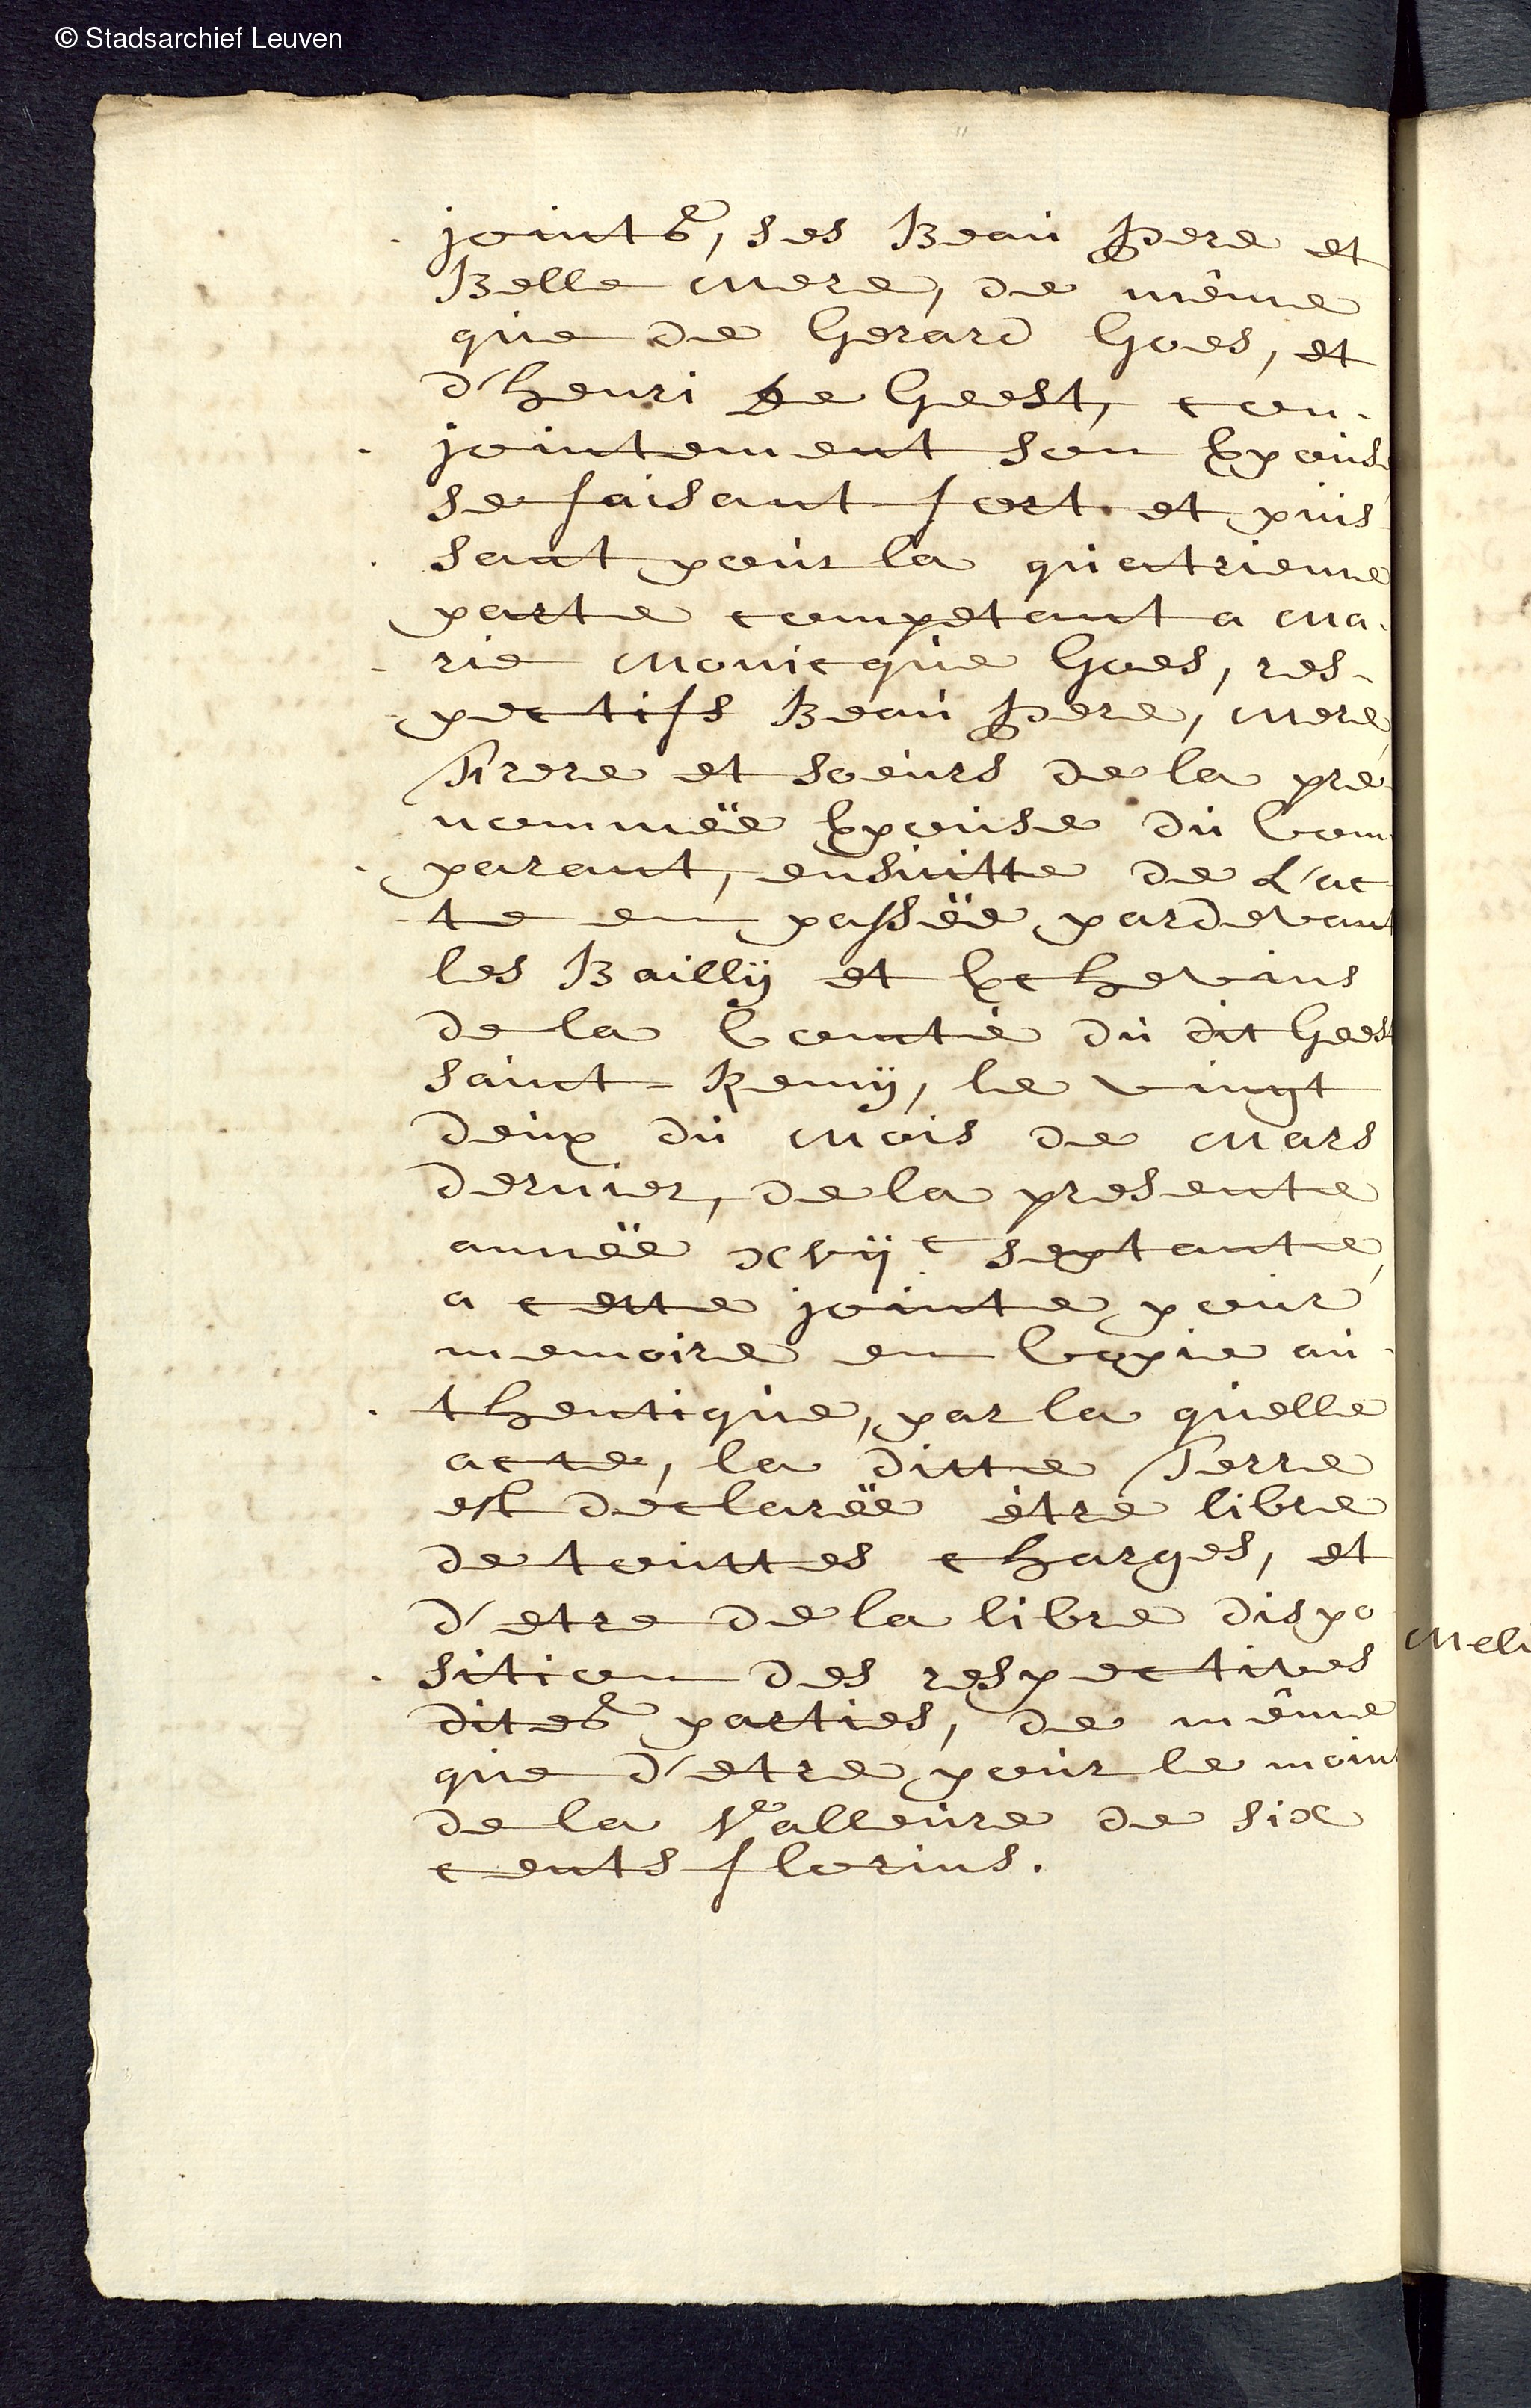 © Stadsarchief Leuven
joints, ses Beau Pere et
Belle Mere, de même
que de Gerard Goes, et
d'henri De Geest, con-
jointement son Epouse
se faisant fort et puis-
sant pour la quatrieme
parte competant a Ma-
rie Monicque Goes, res-
pectifs Beau Pere, Mere,
Frere et soeurs de la pre-
nommëe Epouse du Com-
parant, ensuitte de L'ac-
te en passëe pardevant
les Baillÿ et Echevins
de la Comté du dit Geest
sainct-Remÿ, le vingt
deux du Mois de Mars
dernier, de la presente
annëe xvijc septante,
a cette jointe pour
memoire en Copie au-
thentique, par la quelle
acte, la ditte Terre
est declarëe être libre
de touttes charges, et
d'etre de la libre dispo-
sition des respectives
dites parties, de même
que d'etre pour le moins
de la Valleure de six
cents florins.
Meli